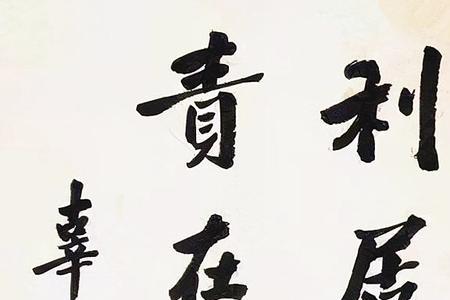 利居
責在
辜